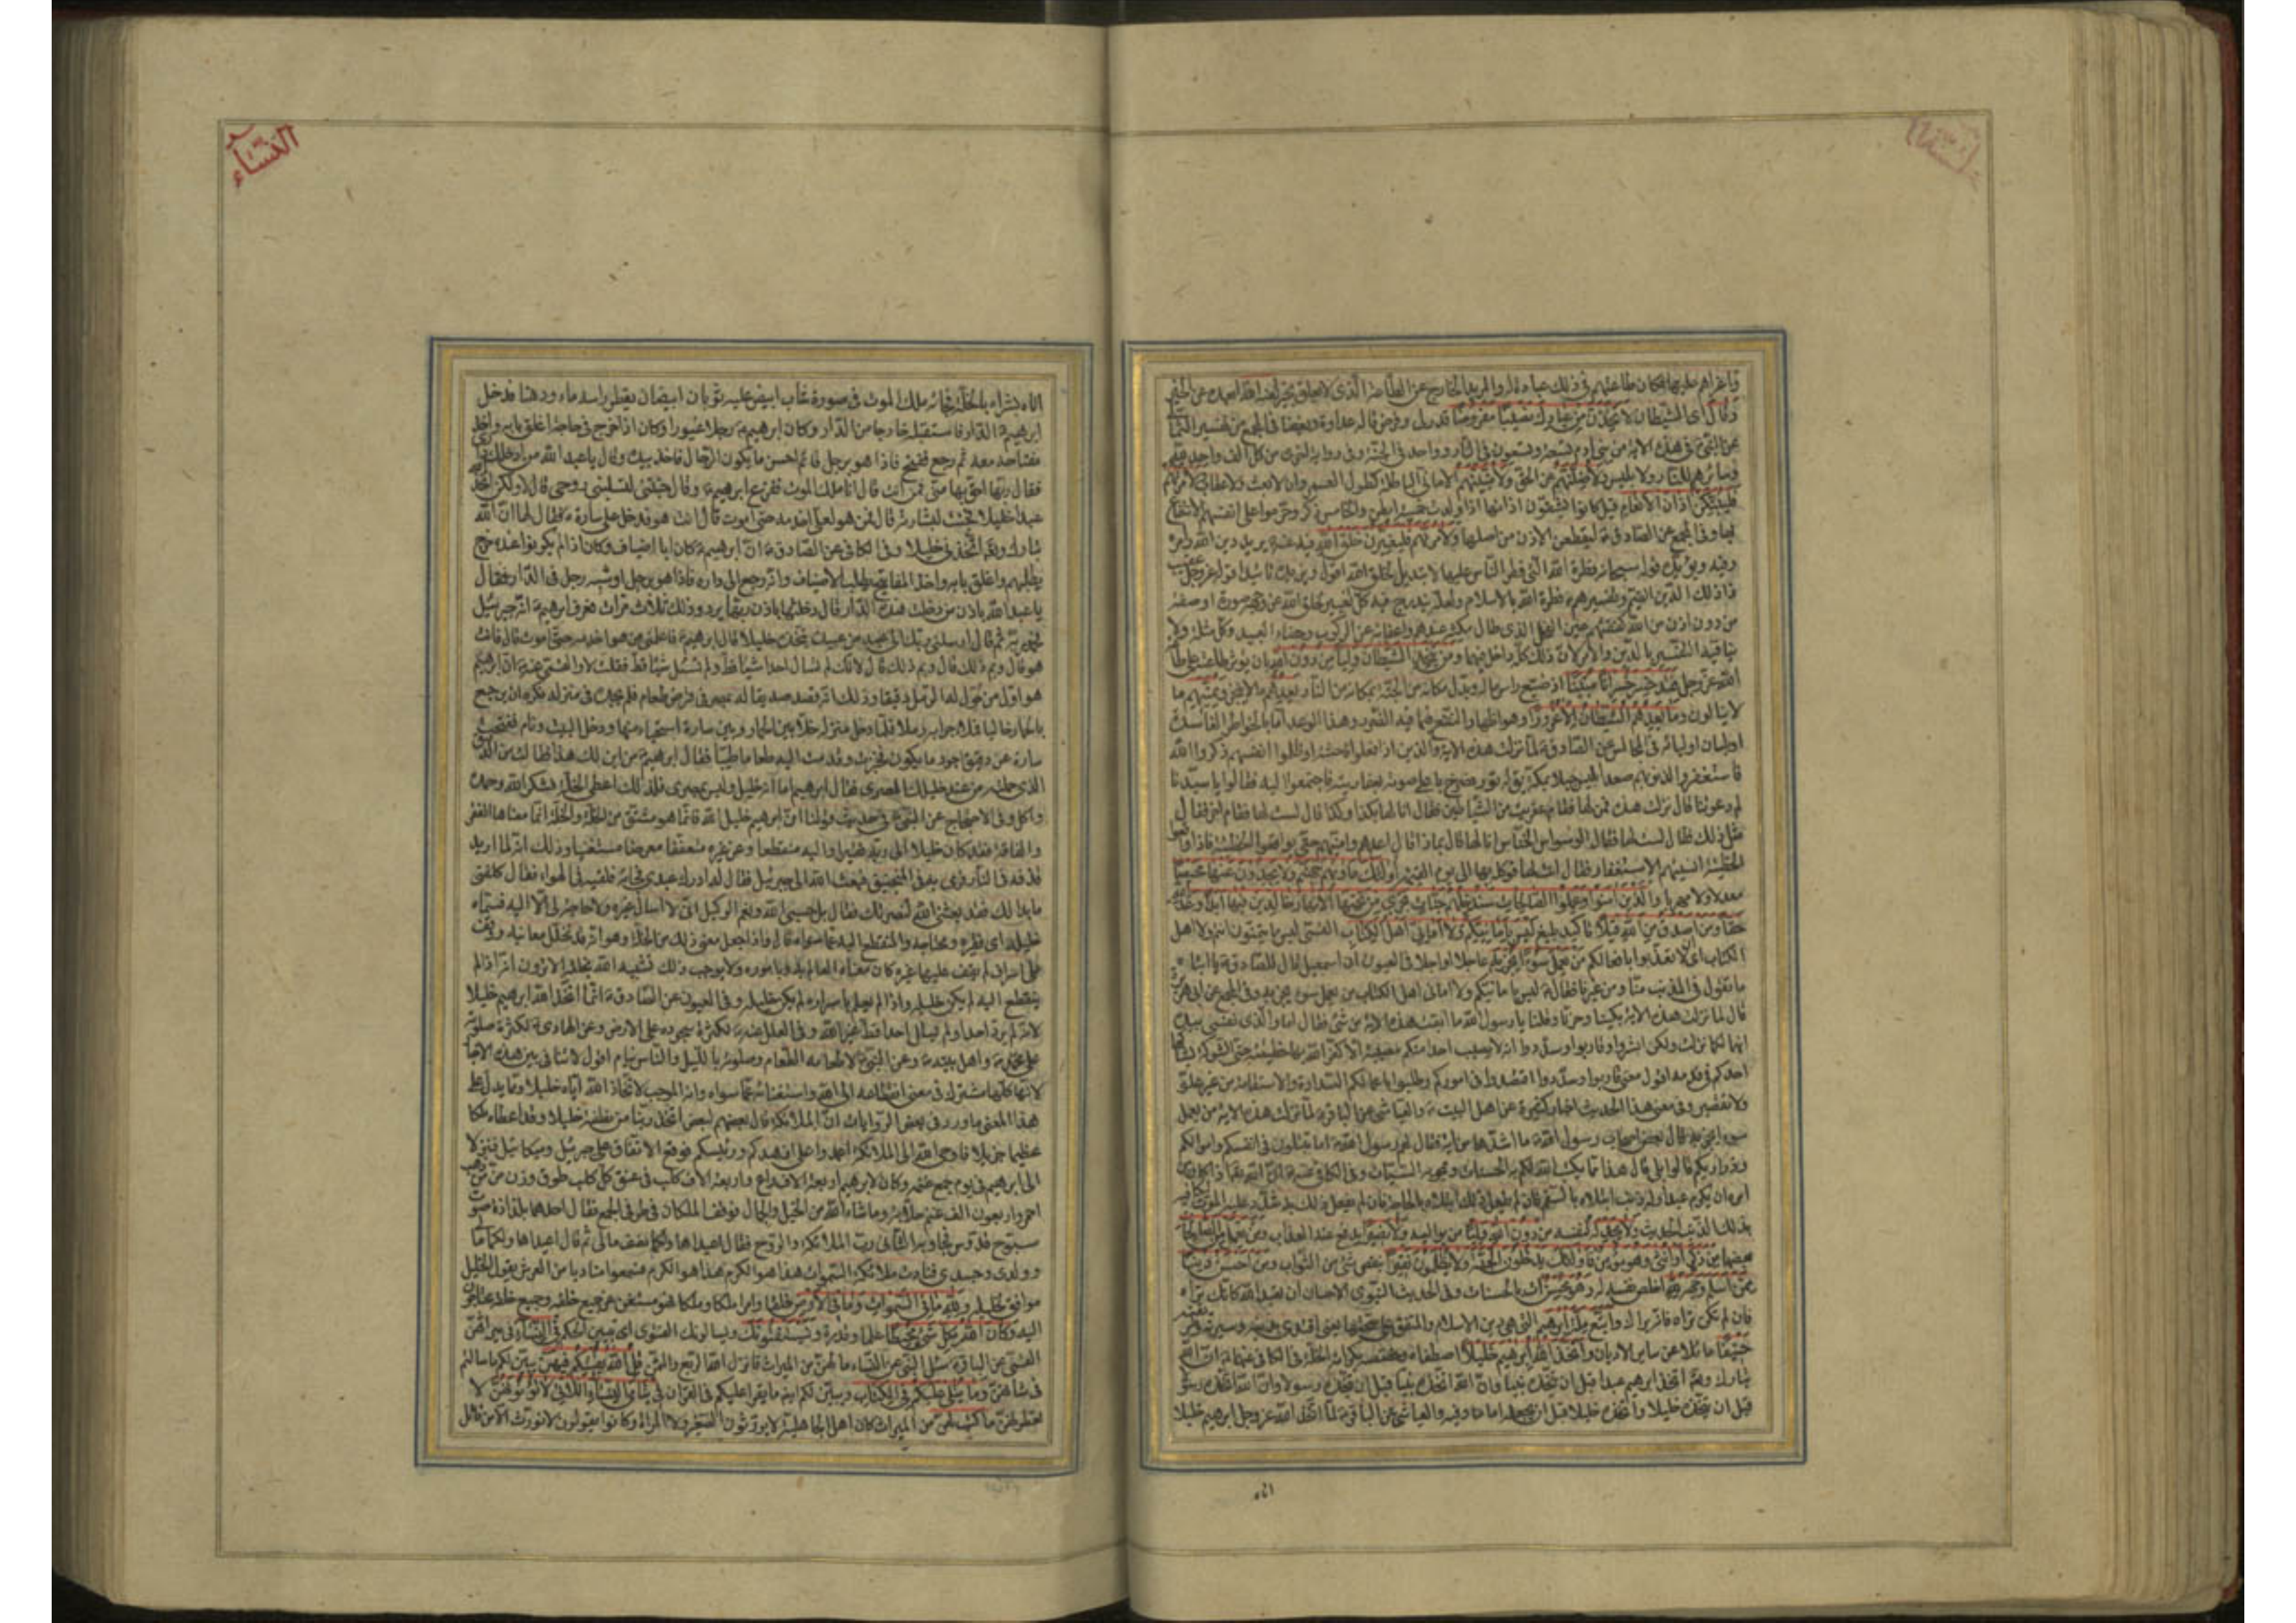 النساء
وقال اى الشيطان لاتخذن من عبادك نصيبا مفروضا قدر لى وفرض قاله عداوة وبغضا فى المجمع من تفسير الثمالى
عن النبى فى هذه الاية من بنى ادم تسعة وتسعون فى النار وواحد فى الجنة وفى رواية اخرى من كل الف واحد لله
وسائرهم للنار ولابليس ولاضلنهم عن الحق ولامنينهم الامانى الباطلة كطول العمر وان لا بعث ولا عقاب ولامرنهم
فليبتكن اذان الانعام قيل كانوا يشقون اذانها اذا ولدت خمسة ابطن والخامس ذكر وحرموا على انفسهم الانتفاع
بها وفى المجمع عن الصادق ليقطعن الاذن من اصلها ولامرنهم فليغيرن خلق الله عنه يريد دين الله وامره
وفيه ويؤيده قوله سبحانه فطرة الله التى فطر الناس عليها لا تبديل لخلق الله اقول ويزيده تاييدا قوله عز وجل عقيب
ذلك الدين القيم وتفسيرهم فطرة الله بالاسلام ولعله يندرج فيه كل تغيير لخلق الله عن وجهه صورة او صفة
من دون اذن من الله كفقئهم عين الفحل الذى طال مكثه عندهم واعفائه عن الركوب وخصاء العبيد وكل مثلة ولا
ينافيه التفسير بالدين والامر لان ذلك كله داخل فيهما ومن يتخذ الشيطان وليا من دون الله بان يؤثر طاعته على طاعة
الله عز وجل فقد خسر خسرانا مبينا اذ ضيع راس ماله وبدل مكانه من الجنة بمكانه من النار يعدهم ما لا ينجز ويمنيهم ما
لا ينالون وما يعدهم الشيطان الا غرورا وهو اظهار النفع فيما فيه الضرر وهذا الوعد اما بالخواطر الفاسدة
او بلسان اوليائه فى المجالس عن الصادق لما نزلت هذه الاية والذين اذا فعلوا فاحشة او ظلموا انفسهم ذكروا الله
فاستغفروا لذنوبهم صعد ابليس جبلا بمكة يقال له ثور فصرخ باعلى صوته بعفاريته فاجتمعوا اليه فقالوا يا سيدنا
لم دعوتنا قال نزلت هذه فمن لها فقام عفريت من الشياطين فقال انا لها بكذا وكذا قال لست لها فقام اخر فقال
مثل ذلك فقال لست لها فقال الوسواس الخناس انا لها قال بماذا قال اعدهم وامنيهم حتى يواقعوا الخطيئة فاذا واقعوا
الخطيئة انسيتهم الاستغفار فقال انت لها فوكله بها الى يوم القيمة اولئك ماويهم جهنم ولا يجدون عنها محيصا
معدلا ولا مهربا والذين امنوا وعملوا الصالحات سندخلهم جنات تجرى من تحتها الانهار خالدين فيها ابدا وعد الله
حقا ومن اصدق من الله قيلا تاكيد بليغ ليس بامانيكم ولا امانى اهل الكتاب
الكتاب اى لا تعذبوا بافعالكم من يعمل سوءا يجز به عاجلا او اجلا فى العيون ان اسمعيل قال للصادق يا ابتاه
ما تقول فى المذنب منا ومن غيرنا فقال ليس بامانيكم ولا امانى اهل الكتاب من يعمل سوء يجز به وفى المجمع عن ابى هريرة
قال لما نزلت هذه الاية بكينا وحزنا وقلنا يا رسول الله ما ابقت هذه الاية من شئ فقال اما والذى نفسى بيده
انها لكما نزلت ولكن ابشروا وقاربوا وسددوا انه لا يصيب احدا منكم مصيبة الا كفر الله بها خطيئته حتى الشوكة يشاكها
احدكم فى قدمه اقول معنى قاربوا وسددوا اقتصدوا فى اموركم واطلبوا باعمالكم السداد والاستقامة من غير غلو
ولا تقصير وفى معنى هذا الحديث اخبار كثيرة عن اهل البيت والعياشى عن الباقر لما نزلت هذه الاية من يعمل
سوءا يجز به قال بعض اصحاب رسول الله ما اشدها من اية فقال لهم رسول الله اما تبتلون فى انفسكم واموالكم
وذراريكم قالوا بلى قال هذا مما يكتب الله لكم به الحسنات ويمحو به السيئات وفى الكافى عنه ان الله تعالى اذا كان من
امره ان يكرم عبدا وله ذنب ابتلاه بالسقم فان لم يفعل ذلك ابتلاه بالحاجة فان لم يفعل ذلك به شدد عليه الموت ليكافيه
بذلك الذنب الحديث ولا يجد له لنفسه من دون الله وليا من يواليه ولا نصيرا يدفع عنه العذاب ومن يعمل من الصالحات
بعضها من ذكر او انثى وهو مؤمن فاولئك يدخلون الجنة ولا يظلمون نقيرا بنقص شئ من الثواب ومن احسن دينا
ممن اسلم وجهه لله اخلص نفسه له وهو محسن ات بالحسنات وفى الحديث النبوى الاحسان ان تعبد الله كانك تراه
فان لم تكن تراه فانه يراك واتبع ملة ابراهيم التى هى دين الاسلام والمتفق على صحتها
حنيفا مائلا عن ساير الاديان واتخذ الله ابراهيم خليلا اصطفاه وخصصه بكرامة الخلة فى الكافى عنهما ان الله
تبارك وتعالى اتخذ ابراهيم عبدا قبل ان يتخذه نبيا وان الله اتخذه نبيا قبل ان يتخذه رسولا وان الله اتخذه رسولا
قبل ان يتخذه خليلا وان الله اتخذه خليلا قبل ان يجعله اماما وفيه والعياشى عن الباقر لما اتخذ الله عز وجل ابراهيم خليلا
اتاه
النساء
اتاه بشراه بالخلة فجائه ملك الموت فى صورة شاب ابيض عليه ثوبان ابيضان يقطر راسه ماء ودهنا فدخل
ابراهيم الدار فاستقبله خارجا من الدار وكان ابراهيم رجلا غيورا وكان اذا خرج فى حاجة اغلق بابه واخذ
مفتاحه معه ثم رجع ففتح فاذا هو برجل قائم احسن ما يكون الرجال فاخذ بيده وقال يا عبد الله من ادخلك دارى
فقال ربها احق بها منى فمن انت قال انا ملك الموت ففزع ابراهيم وقال جئتنى لتسلبنى روحى قال لا ولكن اتخذ الله
عبدا خليلا فجئت لبشارته قال فمن هو لعلى اخدمه حتى اموت قال انت هو فدخل على سارة فقال لها ان الله
تبارك وتعالى اتخذنى خليلا وفى الكافى عن الصادق ان ابراهيم كان ابا اضياف وكان اذا لم يكونوا عنده خرج
يطلبهم واغلق بابه واخذ المفاتيح يطلب الاضياف وانه رجع الى داره فاذا هو برجل او شبه رجل فى الدار فقال
يا عبد الله باذن من دخلت هذه الدار قال دخلتها باذن ربها يردد ذلك ثلاث مرات فعرف ابراهيم انه جبرئيل
فحمد ربه ثم قال ارسلنى ربك الى عبد من عبيده يتخذه خليلا قال ابراهيم فاعلمنى من هو اخدمه حتى اموت قال فانت
هو قال وبم ذلك قال لانك لم تسال احدا شيئا قط ولم تسئل شيئا قط فقلت لا والقمى عنه ان ابراهيم
هو اول من حول له الرمل دقيقا وذلك انه قصد صديقا له بمصر فى قرض طعام فلم يجده فى منزله فكره ان يرجع
بالحمار خاليا فملا جرابه رملا فلما دخل منزله خلا بين الحمار وبين سارة استحياء منها ودخل البيت ونام ففتحت
سارة عن دقيق اجود ما يكون فخبزت وقدمت اليه طعاما طيبا فقال ابراهيم من اين لك هذا فقالت من الدقيق
الذى حملته من عند خليلك المصرى فقال ابراهيم اما انه خليلى وليس بمصرى فلذلك اعطى الخلة فشكر الله وحمده
واكل وفى الاحتجاج عن النبى فى حديث قولنا ان ابراهيم خليل الله فانما هو مشتق من الخلة والخلة انما معناها الفقر
والفاقة فقد كان خليلا الى ربه فقيرا واليه منقطعا وعن غيره متعففا معرضا مستغنيا وذلك انه لما اريد
قذفه فى النار فرمى به فى المنجنيق فبعث الله الى جبرئيل فقال له ادرك عبدى فجائه فلقيه فى الهواء فقال كلفنى
ما بدا لك فقد بعثنى الله لنصرتك فقال بل حسبى الله ونعم الوكيل انى لا اسال غيره ولا حاجة لى الا اليه فسماه
خليله اى فقيره ومحتاجه والمنقطع اليه عما سواه قال واذا جعل معنى ذلك من الخلة وهو انه قد تخلل معانيه ووقف
على اسرار لم يقف عليها غيره كان معناه العالم به وباموره ولا يوجب ذلك تشبيه الله بخلقه الا ترون انه اذا لم
ينقطع اليه لم يكن خليله واذا لم يعلم باسراره لم يكن خليله وفى العيون عن الصادق انما اتخذ الله ابراهيم خليلا
لانه لم يرد احدا ولم يسال احدا قط غير الله وفى العلل عنه لكثرة سجوده على الارض وعن الهادى لكثرة صلوته
على محمد واهل بيته وعن النبى لاطعامه الطعام وصلوته بالليل والناس نيام اقول لا تنافى بين هذه الاخبار
لانها كلها مشترك فى معنى انقطاعه الى الله واستغنائه عما سواه وانه الموجب لاتخاذ الله اياه خليلا ومما يدل على
هذا المعنى ما ورد فى بعض الروايات ان الملائكة قال بعضهم لبعض اتخذ ربنا من نطفة خليلا وقد اعطاه ملكا
عظيما جزيلا فاوحى الله الى الملائكة اعمدوا على ازهدكم ورئيسكم فوقع الاتفاق على جبرئيل وميكائيل فنزلا
الى ابراهيم فى يوم جمع غنمه وكان لابراهيم اربعة الاف راع واربعة الاف كلب فى عنق كل كلب طوق وزن من من ذهب
احمر واربعون الف غنم حلابة وما شاء الله من الخيل والجمال فوقف الملكان فى طرفى الجمع فقال احدهما بلذاذة صوت
سبوح قدوس فجاوبه الثانى رب الملائكة والروح فقال اعيداها ولكما نصف مالى ثم قال اعيداها ولكما مالى
وولدى وجسدى فنادت ملائكة السموات هذا هو الكرم هذا هو الكرم فسمعوا مناديا من العرش يقول الخليل
موافق لخليله ولله ما فى السموات وما فى الارض خلقا وامرا ملكا وملكا فهو مستغن عن جميع خلقه وجميع خلقه محتاجون
اليه وكان الله بكل شئ محيطا علما وقدرة ويستفتونك ويسالونك الفتوى اى تبيين الحكم فى النساء فى ميراثهن
القمى عن الباقر سئل النبى عن النساء ما لهن من الميراث فانزل الله الربع والثمن قل الله يفتيكم فيهن يبين لكم ما سالتم
فى شانهن وما يتلى عليكم فى الكتاب ويبين لكم ايضا ما يقرا عليكم فى القران فى يتامى النساء اللاتى لا تؤتونهن لا
تعطونهن ما كتب لهن من الميراث كان اهل الجاهلية لا يورثون الصغير ولا المراة وكانوا يقولون لا نورث الا من قاتل